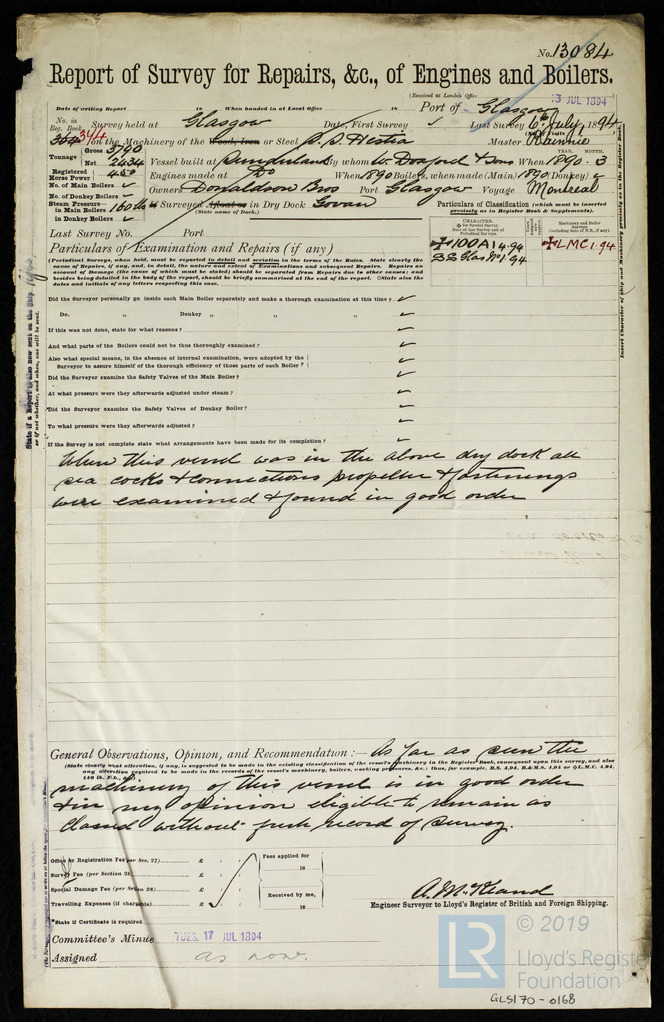 No. 13084
Report of Survey for Repairs, &c., of Engines and Boilers.
(Received at London Office 13 JUL 1894
Date of writing Report 18 When handed in at Local Office 18 Port of Glasgow
No. in Reg. Book. 344 Survey held at Glasgow Date, First Survey ✓ Last Survey 6th July, 1894
on the Machinery of the Wood, Iron or Steel S.S. Hestia Master Rennie
Tonnage Gross 3790 Net 2434 Vessel built at Sunderland By whom W. Doxford & Sons When 1890 . 3
YEAR. MONTH.
Registered Horse Power 450 Engines made at Do When 1890 Boilers, when made (Main) 1890 (Donkey) ✓
No. of Main Boilers ✓
No. of Donkey Boilers ✓ Owners Donaldson Bros Port Glasgow Voyage Montreal
Steam Pressure in Main Boilers 160 lbs If Surveyed Afloat or in Dry Dock Govan
in Donkey Boilers ✓ (State name of Dock.)
Particulars of Classification (which must be inserted precisely as in Register Book & Supplements).
Last Survey No. Port
CHARACTER. ✠ for Special Survey. Date of last Survey and of Periodical Surveys.
Machinery and Boiler Surveys (including date of N.B., if any).
✠100A1 4.94
SS Glas No1. 94
✠LMC 1.94
Particulars of Examination and Repairs (if any)
(Periodical Surveys, when held, must be reported in detail and seriatim in the terms of the Rules. State clearly the
cause of Repairs, if any, and, in detail, the nature and extent of Examinations and subsequent Repairs. Repairs on
account of Damage (the cause of which must be stated) should be separated from Repairs due to other causes; and
besides being detailed in the body of the report, should be briefly summarised at the end of the report. State also the
dates and initials of any letters respecting this case.
Did the Surveyor personally go inside each Main Boiler separately and make a thorough examination at this time? ✓
Do. " Donkey " " " ✓
If this was not done, state for what reasons? ✓
And what parts of the Boilers could not be thus thoroughly examined? ✓
Also what special means, in the absence of internal examination, were adopted by the
Surveyor to assure himself of the thorough efficiency of those parts of each Boiler? ✓
Did the Surveyor examine the Safety Valves of the Main Boiler? ✓
At what pressure were they afterwards adjusted under steam? ✓
Did the Surveyor examine the Safety Valves of Donkey Boiler? ✓
To what pressure were they afterwards adjusted? ✓
If the Survey is not complete state what arrangements have been made for its completion? ✓
When this vessel was in the above dry dock all
sea cocks & connections propeller & fastenings
were examined & found in good order
General Observations, Opinion, and Recommendation:— As far as seen the
(State clearly what alteration, if any, is suggested to be made in the existing classification of the vessel's machinery in the Register Book, consequent upon this survey, and also
any alteration required to be made in the records of the vessel's machinery, boilers, working pressures, &c.: thus, for example, B.S. 4,94, B.&M.S. 4,94, L.M.C. 4,94,
140 lb. F.D., &c.)
machinery of this vessel is in good order
& in my opinion eligible to remain as
Classed without fresh record of survey.
Office or Registration Fee (per Sec. 27) £ : :
Survey Fee (per Section 28) £ : :
Special Damage Fee (per Section 28) £ : :
Travelling Expenses (if chargeable) £ : :
Fees applied for 18
Received by me, 18
A. McKeand
Engineer Surveyor to Lloyd's Register of British and Foreign Shipping.
State if Certificate is required
Committee's Minute TUES. 17 JUL 1894
Assigned as now.
LR © 2019
Lloyd's Register
Foundation
GLS170-0168